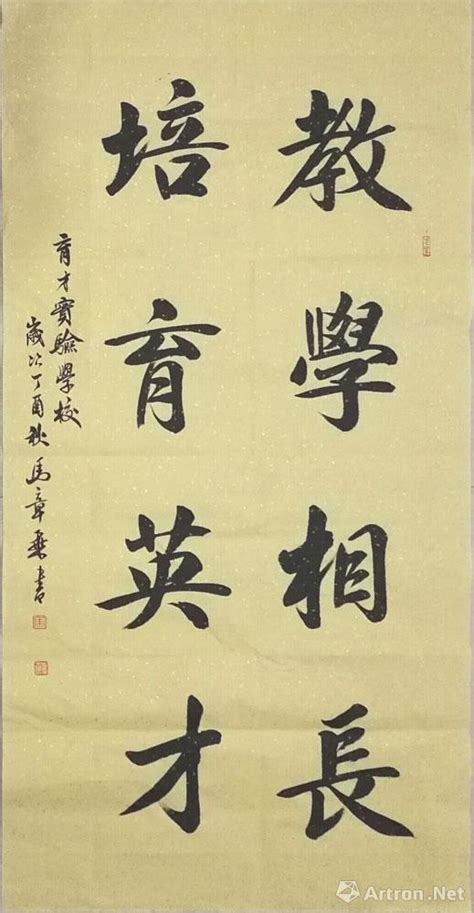 教學相長
培育英才
育才實驗學校
歲次丁酉秋馬章乘書
Artron.Net